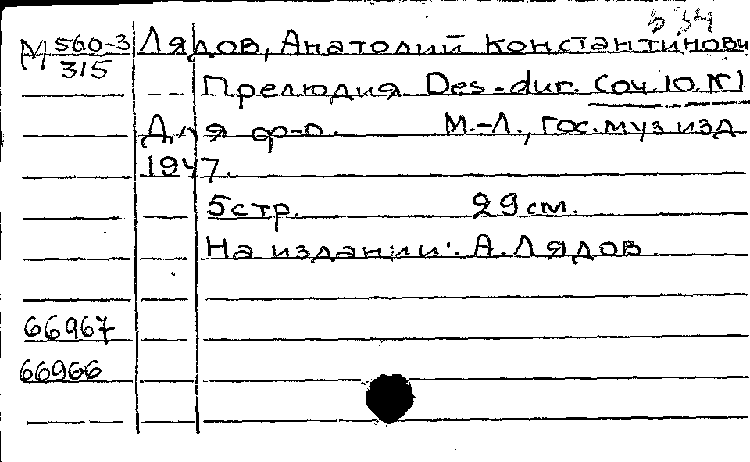 534
М 560-3 Лядов, Анатолий Константинович
315
-- Прелюдия Des-dur. Соч.10.№1
Для ф-п. М.-Л., Гос.музизд
1947.
5стр. 29см.
На издании: А.Лядов
66967
66966